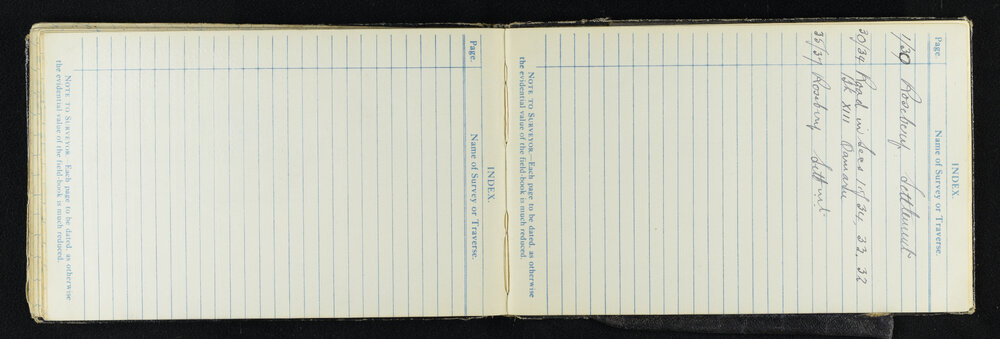 INDEX.
Page. Name of Survey or Traverse.
1/30 Rosebery Settlement
30/34 Road in Secs 1 of 34, 33, 32
Blk XIII
35/37 Rosebery Settmt
NOTE TO SURVEYOR.—Each page to be dated, as otherwise
the evidential value of the field-book is much reduced.
INDEX.
Page. Name of Survey or Traverse.
NOTE TO SURVEYOR.—Each page to be dated, as otherwise
the evidential value of the field-book is much reduced.